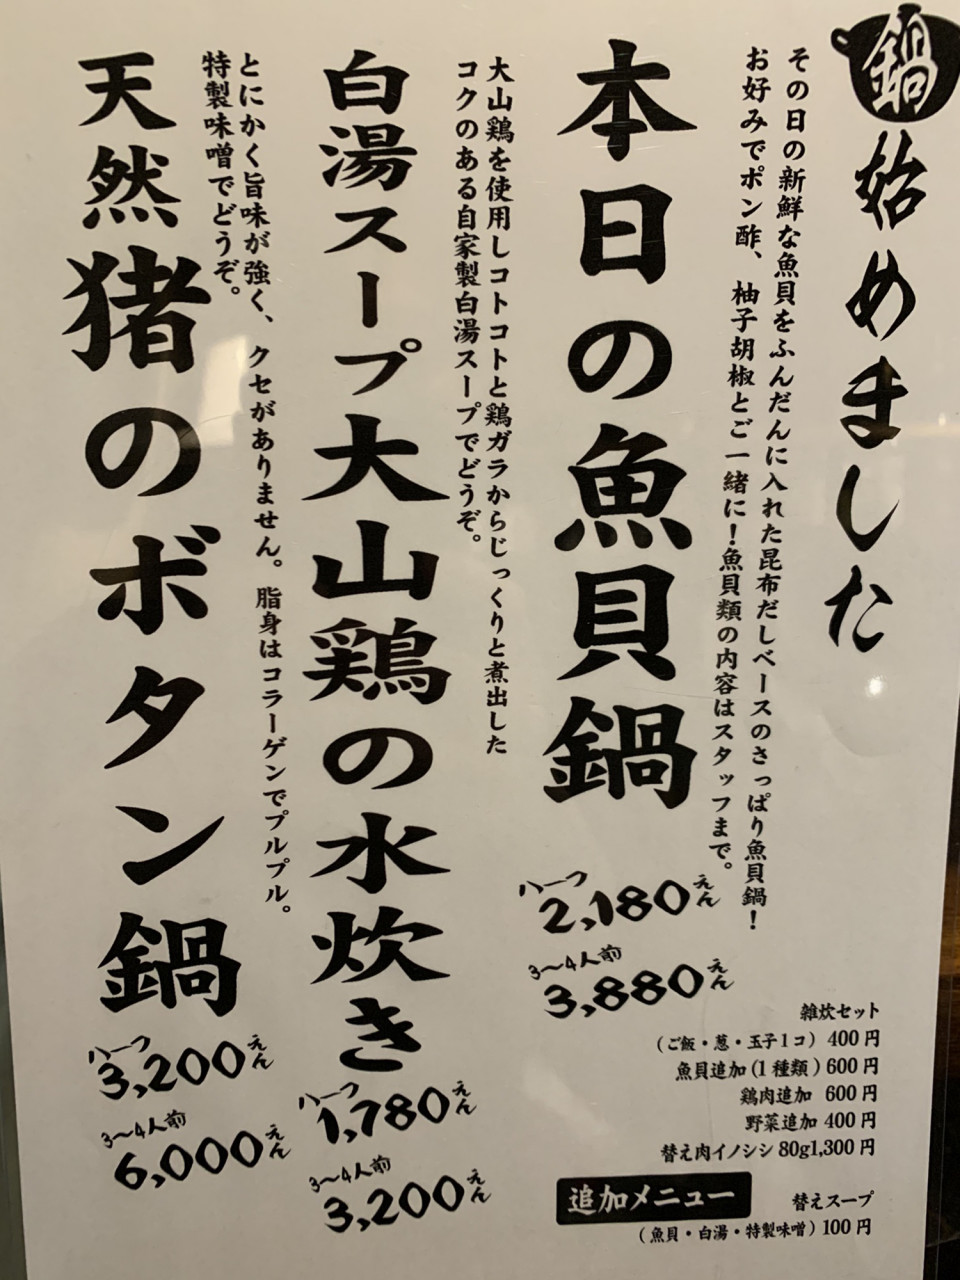 鍋始めました
その日の新鮮な魚貝をふんだんに入れた昆布だしベースのさっぱり魚貝鍋!
お好みでポン酢、柚子胡椒とご一緒に!魚貝類の内容はスタッフまで。
本日の魚貝鍋
ハーフ
2,180えん
3〜4人前
3,880えん
大山鶏を使用しコトコトと鶏ガラからじっくりと煮出した
コクのある自家製白湯スープでどうぞ。
白湯スープ大山鶏の水炊き
ハーフ
1,780えん
3〜4人前
3,200えん
とにかく旨味が強く、クセがありません。脂身はコラーゲンでプルプル。
特製味噌でどうぞ。
天然猪のボタン鍋
ハーフ
3,200えん
3〜4人前
6,000えん
雑炊セット
(ご飯・葱・玉子1コ) 400円
魚貝追加(1種類)600円
鶏肉追加 600円
野菜追加 400円
替え肉イノシシ80g1,300円
追加メニュー
替えスープ
(魚貝・白湯・特製味噌)100円